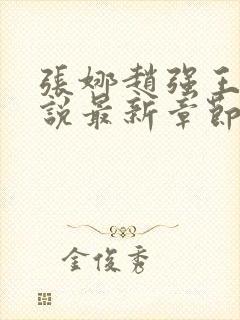 張娜趙强王
說最新章節
金俊秀